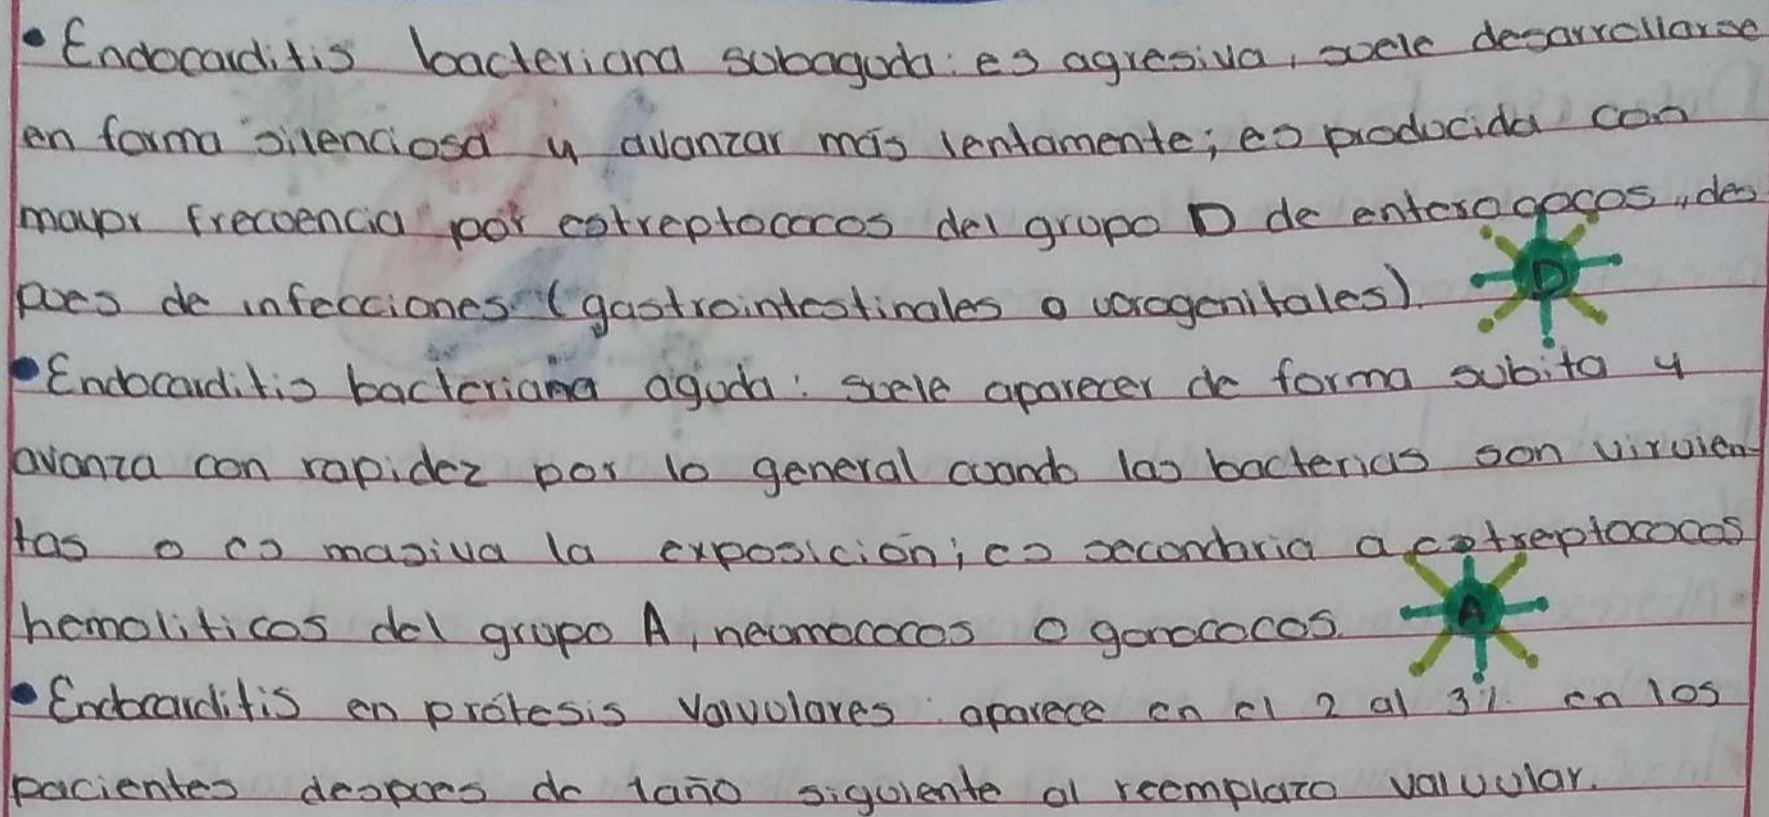 • Endocarditis bacteriana subaguda: es agresiva, suele desarrollarse
en forma silenciosa y avanzar más lentamente; es producida con
mayor frecuencia por estreptococos del grupo D de enterococos, des
pues de infecciones (gastrointestinales o urogenitales).
D
• Endocarditis bacteriana aguda: suele aparecer de forma subita y
avanza con rapidez por lo general cuando las bacterias son virulen-
tas o es masiva la exposición; es secundaria a estreptococos
hemoliticos del grupo A, neumococos o gonococos.
A
• Endocarditis en prótesis valvulares: aparece en el 2 al 3% en los
pacientes despues de 1año siguiente al reemplazo valvular.